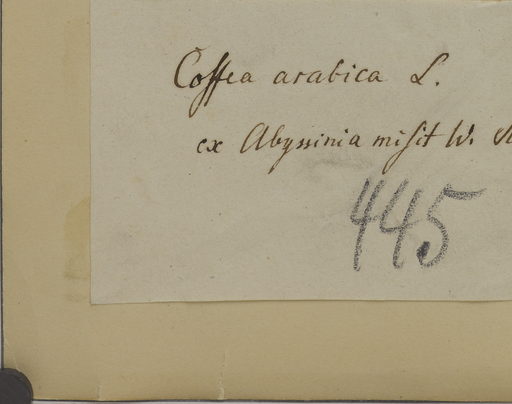 Coffea arabica L.
ex Abyssinia misit W.
445